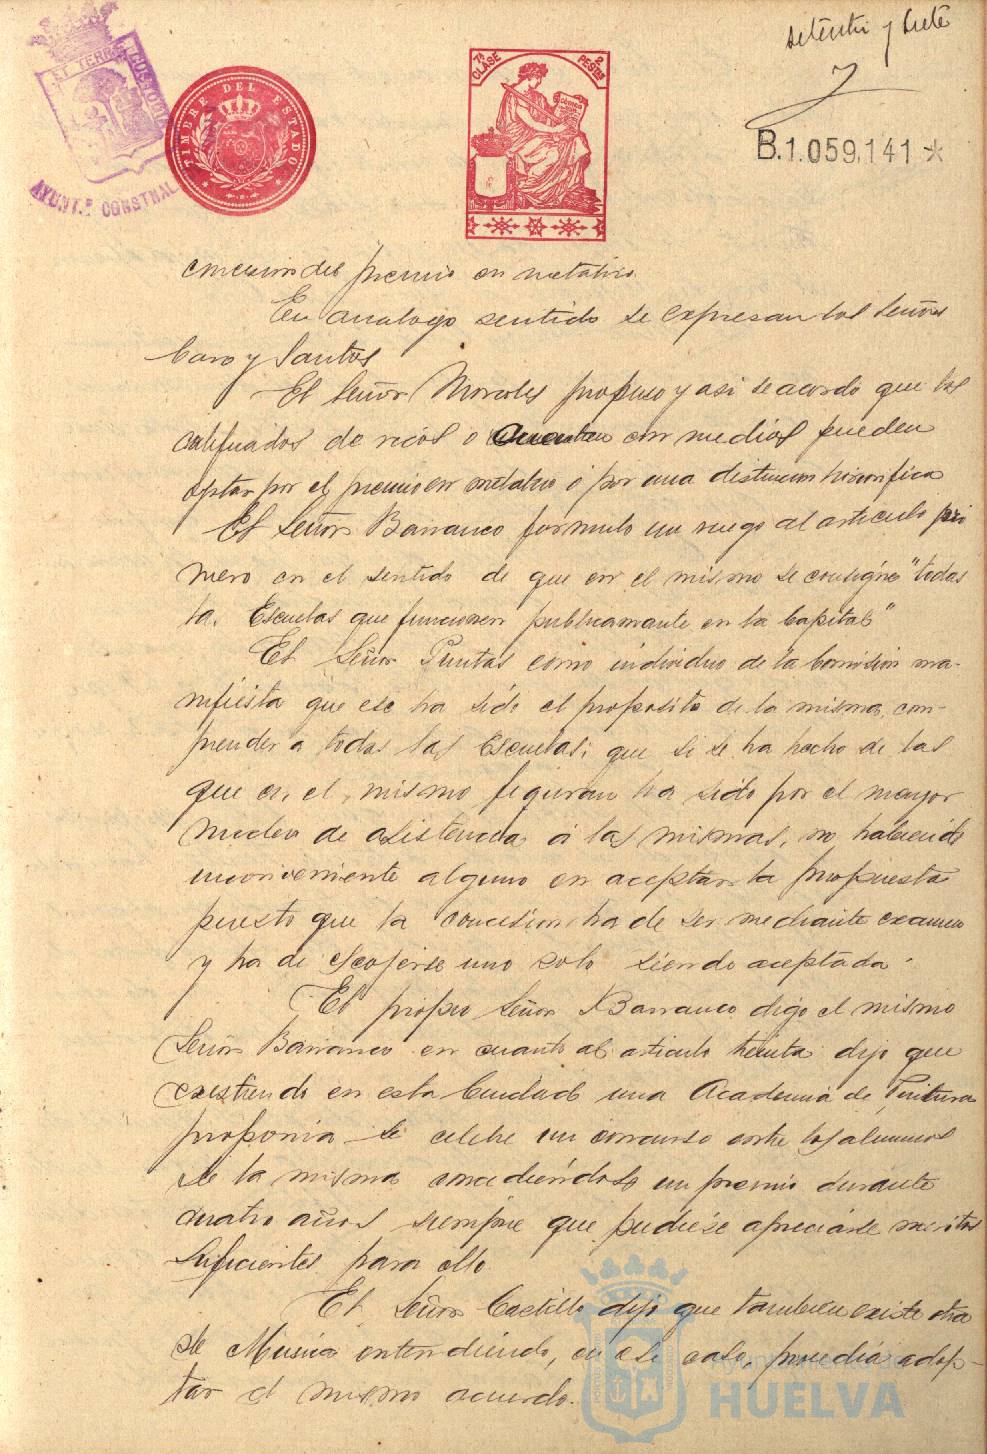 setenta y siete
TIMBRE DEL ESTADO
7ª CLASE 2 PESTAS
AYUNT.º CONSTNAL
B.1.059,141 *
concesion del premio en metalico
En analogo sentido se expresan los Señores
Caro y Santos
El Señor Morales propuso y asi se acordo que los
calificados de ricos o cuenten con medios pueden
optar por el premio en metalico ó por una distincion honorifica
El Señor Barranco formulo un ruego al articulo pri
mero en el sentido de que en el mismo se consigne "todas
la. Escuelas que funcionen publicamante en la Capital"
El Señor Puntas como individuo de la Comision ma-
nifiesta que ese ha sido el proposito de la misma, com-
prender a todas las Escuelas; que si se ha hecho de las
que en el mismo figuran ha sido por el mayor
numero de asistencia á las mismas, no habiendo
inconveniente alguno en aceptar la propuesta
puesto que la concesion ha de ser mediante examen
y ha de escojerse uno solo siendo aceptada.
El propio Señor Barranco digo el mismo
Señor Barranco en cuanto al articulo treinta dijo que
existiendo en esta Ciudad una Academia de Pintura
proponia se celebre un concurso entre los alumnos
de la misma concediendose un premio durante
cuatro años siempre que pudiese apreciarse meritos
suficientes para ello
El Señor Castillo dijo que tambien existe otra
de Musica entendiendo, en ese caso, procedia adop-
tar el mismo acuerdo.
Ayuntamiento de
HUELVA